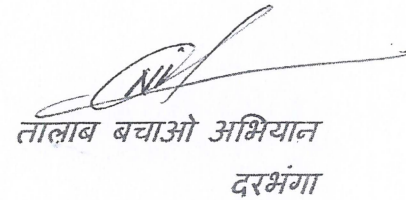 तालाब बचाओ अभियान
दरभंगा